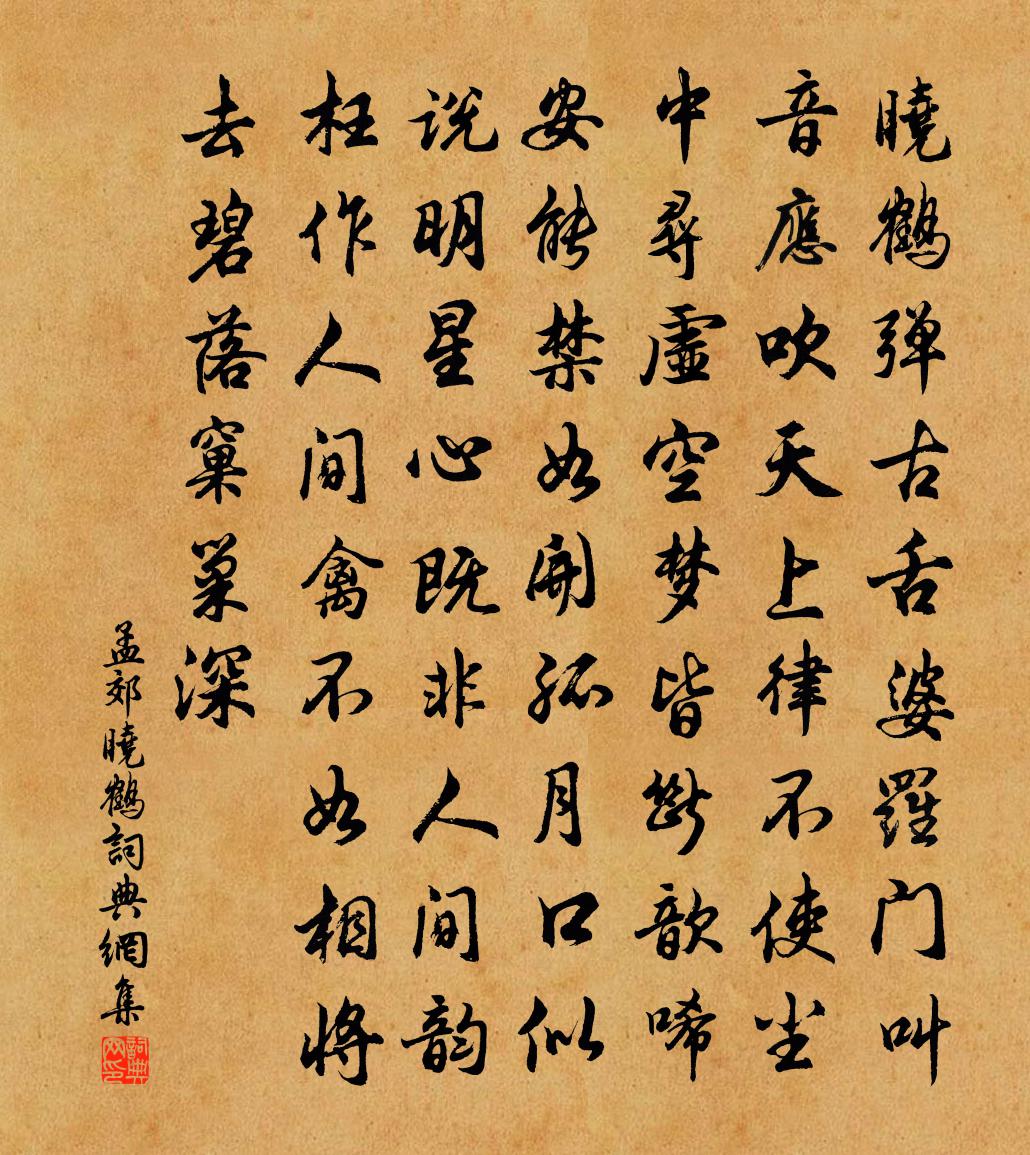 曉鶴弹古舌婆羅门叫
音應吹天上律不使尘
中尋虛空梦皆断歆唏
安能禁如開孤月口似
说明星心既非人间韵
枉作人间禽不如相将
去碧落窠巢深
孟郊曉鶴詞典網集
詞典网印